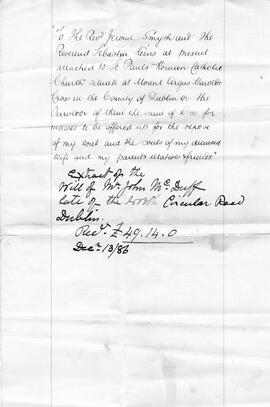 "To The Revd Jerome Smyth and The
Reverend Sebastin at present
attached to St Pauls Roman Catholic
Church situate at Mount Argus Harolds
Cross in the County of Dublin or the
Survivor of them the sum of for
masses to be offered up for the repose
of my soul and the souls of my deceased
Wife and my parents relatives & friends"
Extract of the
Will of Mr John McDuff
late of the Circular Road
Dublin.
Recd. £49.14.0
Decr. 13/86